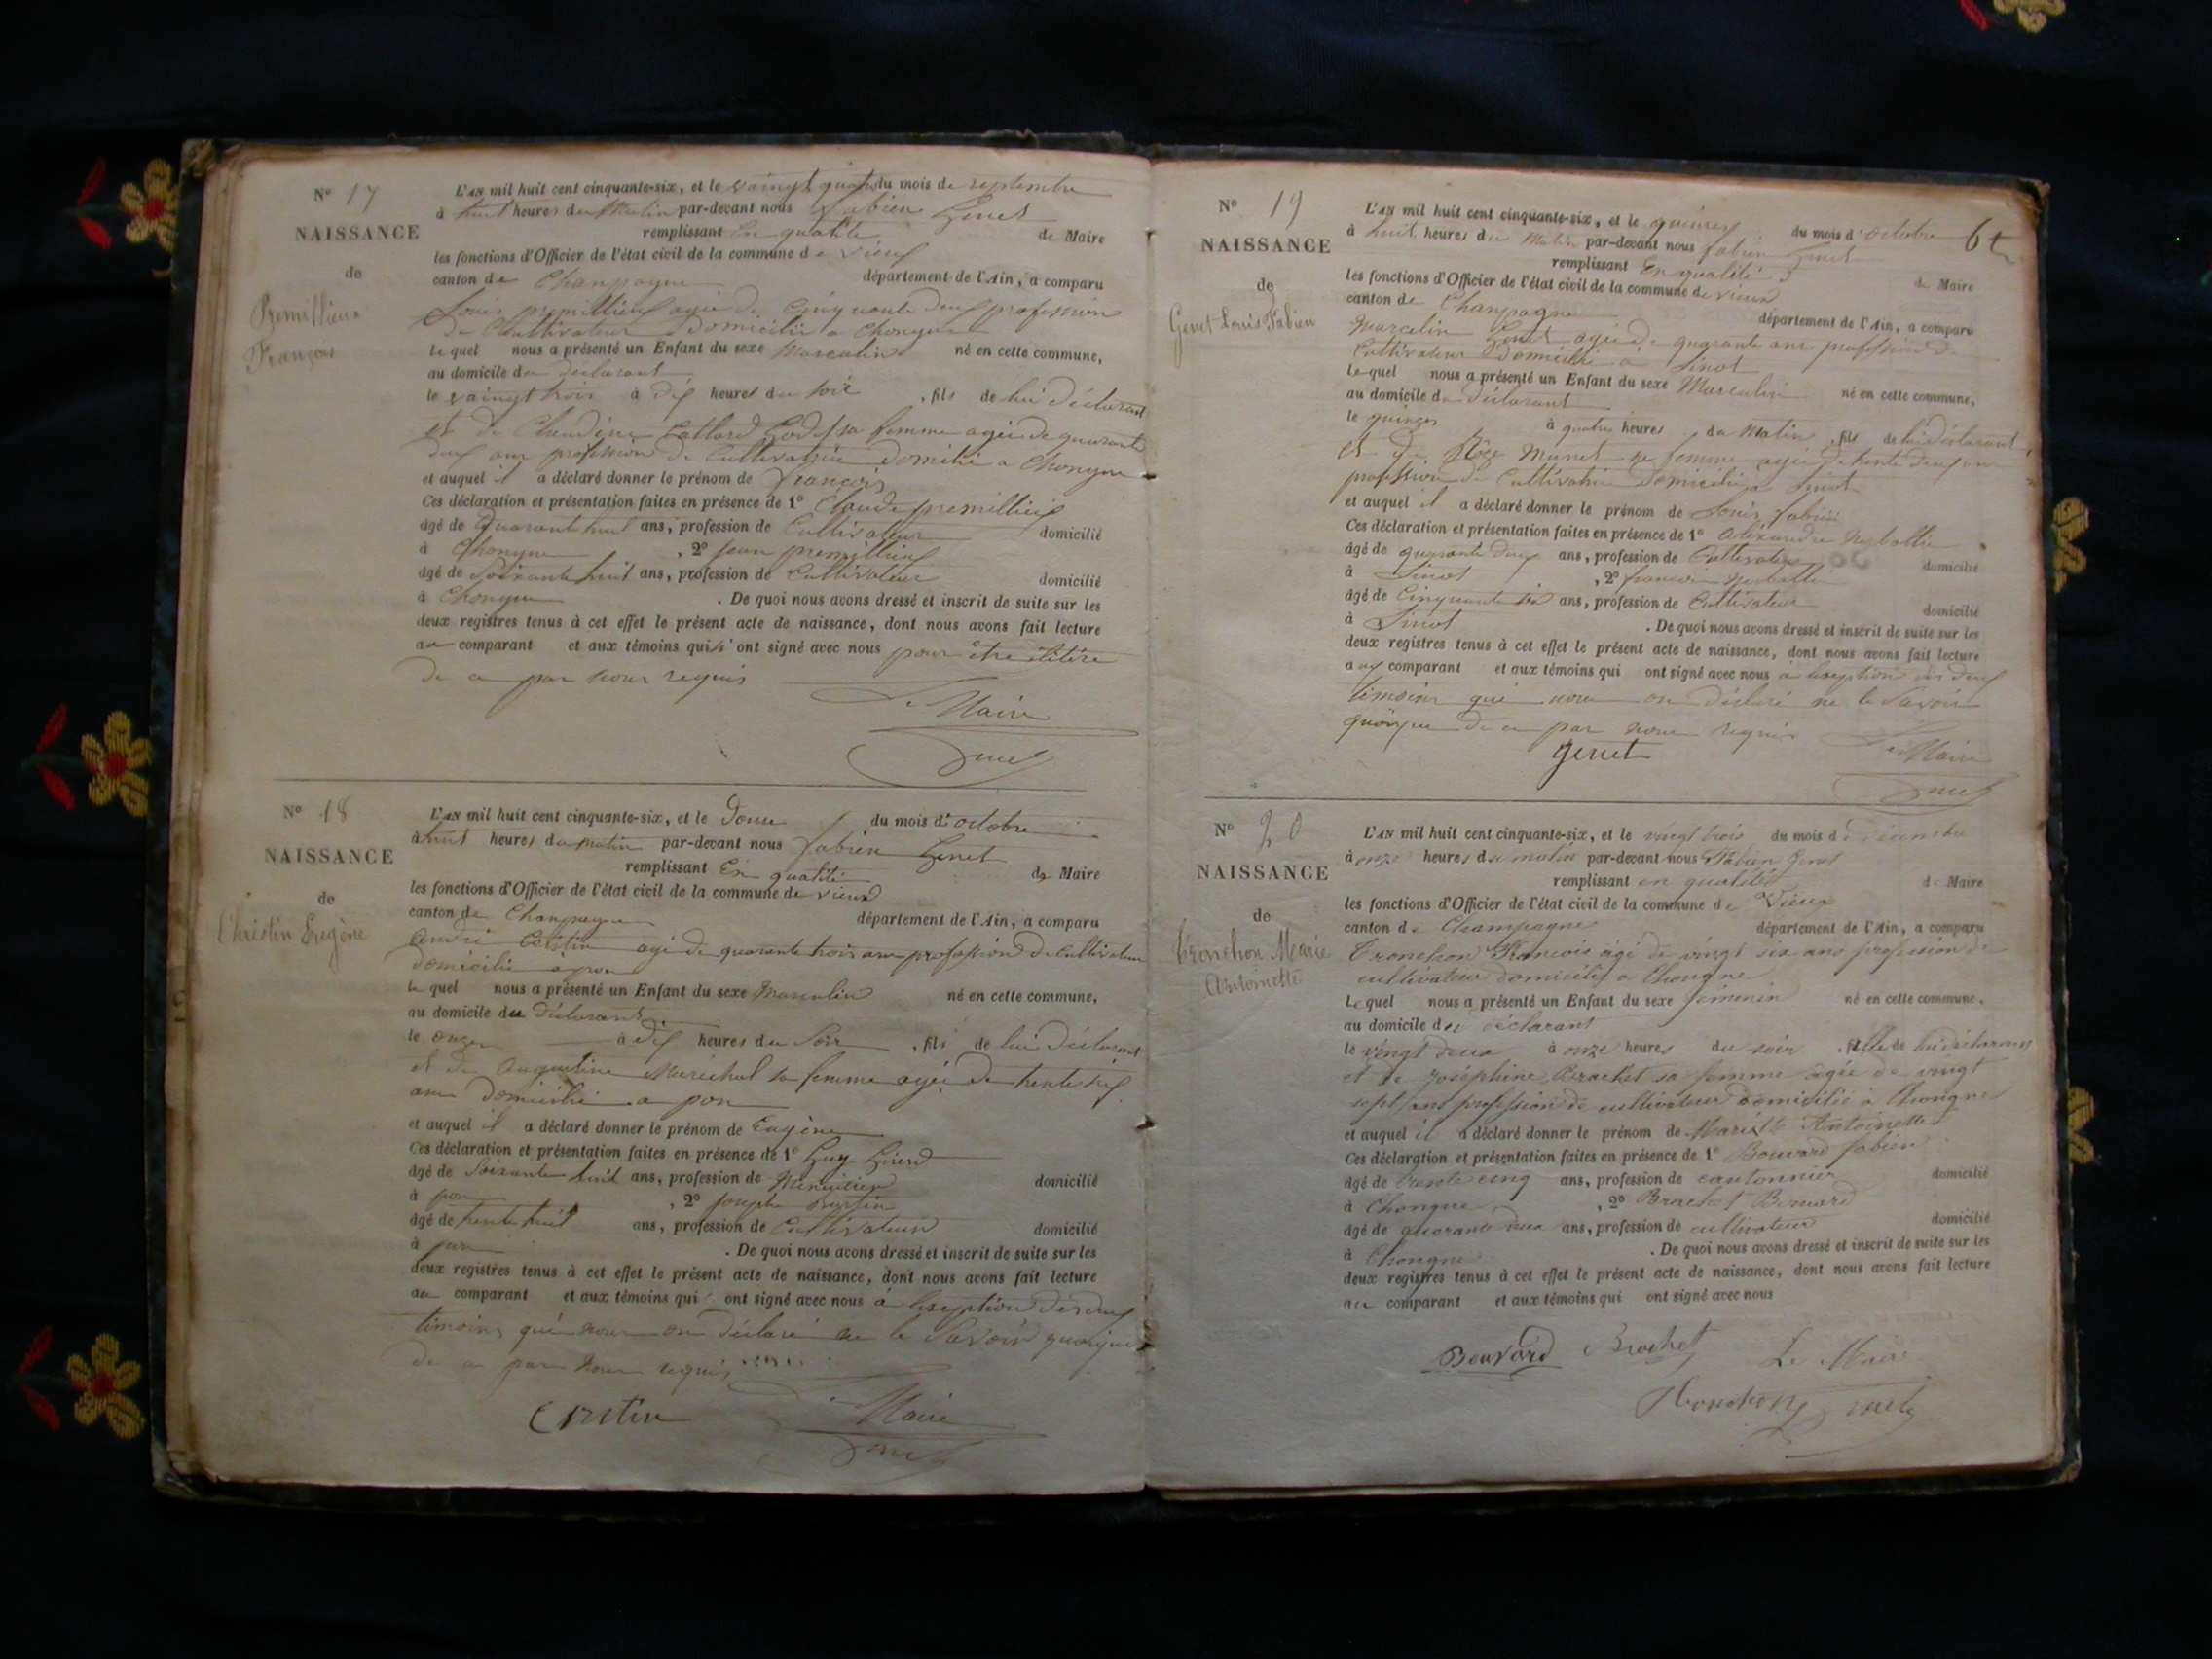 N° 17
NAISSANCE
de
Premillieux
François
L'AN mil huit cent cinquante-six, et le vaingt quatre du mois de septembre
à huit heures du Matin par-devant nous fabien Genet
remplissant En qualité de Maire
les fonctions d'Officier de l'état civil de la commune de vieux
canton de Champagne département de l'Ain, a comparu
Louis premillieux agée de Cinquante deux profession
de Cultivateur domicilié a Chongne
le quel nous a présenté un Enfant du sexe Masculin né en cette commune,
au domicile du déclarant
le vaingt trois à dix heures du soir, fils de lui déclarant
et de Claudine sa femme agée de quarante
deux ans profession de Cultivatrice domicilié a Chongne
et auquel il a déclaré donner le prénom de François
Ces déclaration et présentation faites en présence de 1° Claude premillieux
âgé de Quarant huit ans, profession de Cultivateur domicilié
à Chongne, 2° jean premillieux
âgé de Soixante huit ans, profession de Cultivateur domicilié
à Chongne. De quoi nous avons dressé et inscrit de suite sur les
deux registres tenus à cet effet le présent acte de naissance, dont nous avons fait lecture
au comparant et aux témoins qui ont signé avec nous pour être
de ce par nous requis
Le Maire
Genet
N° 18
NAISSANCE
de
Christin Eugène
L'AN mil huit cent cinquante-six, et le Douze du mois d'octobre
à huit heures du matin par-devant nous fabien Genet
remplissant En qualité de Maire
les fonctions d'Officier de l'état civil de la commune de vieux
canton de Champagne département de l'Ain, a comparu
André agé de quarante trois ans profession de Cultivateur
domicilié à pon
le quel nous a présenté un Enfant du sexe Masculin né en cette commune,
au domicile du déclarant
le onze à dix heures du Soir, fils de lui déclarant
et de Augustine Maréchal sa femme agée de trente six
ans domicilié a pon
et auquel il a déclaré donner le prénom de Eugène
Ces déclaration et présentation faites en présence de 1° Guy
âgé de Soixante huit ans, profession de Menuisier domicilié
à pon, 2° joseph
âgé de trente huit ans, profession de Cultivateur domicilié
à pon. De quoi nous avons dressé et inscrit de suite sur les
deux registres tenus à cet effet le présent acte de naissance, dont nous avons fait lecture
au comparant et aux témoins qui ont signé avec nous à lexeption des deux
témoins qui nous on déclaré ne le Savoir quoique
de ce par nous requis
Cristin Le Maire
Genet
N° 19
NAISSANCE
de
Genet Louis Fabien
6
L'AN mil huit cent cinquante-six, et le quinze du mois d'octobre
à huit heures du Matin par-devant nous fabien Genet
remplissant En qualité de Maire
les fonctions d'Officier de l'état civil de la commune de vieux
canton de Champagne département de l'Ain, a comparu
Marcelin Genet agé de quarante ans profession de
Cultivateur domicilié à Linot
le quel nous a présenté un Enfant du sexe Masculin né en cette commune,
au domicile du déclarant
le quinze à quatre heures du Matin, fils de lui déclarant
et de Roze Munet sa femme agée de trente deux ans
profession de Cultivatrice domicilié a Linot
et auquel il a déclaré donner le prénom de Louis fabien
Ces déclaration et présentation faites en présence de 1° Alexandre
âgé de quarante deux ans, profession de Cultivateur domicilié
à Linot, 2° francois
âgé de Cinquante six ans, profession de Cultivateur domicilié
à Linot. De quoi nous avons dressé et inscrit de suite sur les
deux registres tenus à cet effet le présent acte de naissance, dont nous avons fait lecture
aux comparant et aux témoins qui ont signé avec nous à lexeption des deux
témoins qui nous on déclaré ne le Savoir
quoique de ce par nous requis
genet Le Maire
Genet
N° 20
NAISSANCE
de
Tronchon Marie
Antoinette
L'AN mil huit cent cinquante-six, et le vingt trois du mois de
à onze heures du matin par-devant nous Fabien Genet
remplissant en qualité de Maire
les fonctions d'Officier de l'état civil de la commune de Vieux
canton de Champagne département de l'Ain, a comparu
Tronchon François âgé de vingt six ans profession de
cultivateur domicilié a Chongne
Le quel nous a présenté un Enfant du sexe féminin né en cette commune,
au domicile du déclarant
le vingt deux à onze heures du soir, fille de lui déclarant
et de Joséphine Brachet sa femme âgée de vingt
sept ans profession de cultivateur domicilié à Chongne
et auquel il a déclaré donner le prénom de Marie Antoinette
Ces déclaration et présentation faites en présence de 1° Bouvard fabien
âgé de trente cinq ans, profession de cantonnier domicilié
à Chongne, 2° Brachet Bernard
âgé de quarante deux ans, profession de cultivateur domicilié
à Chongne. De quoi nous avons dressé et inscrit de suite sur les
deux registres tenus à cet effet le présent acte de naissance, dont nous avons fait lecture
au comparant et aux témoins qui ont signé avec nous
Bouvard Brachet Le Maire
Tronchon Genet